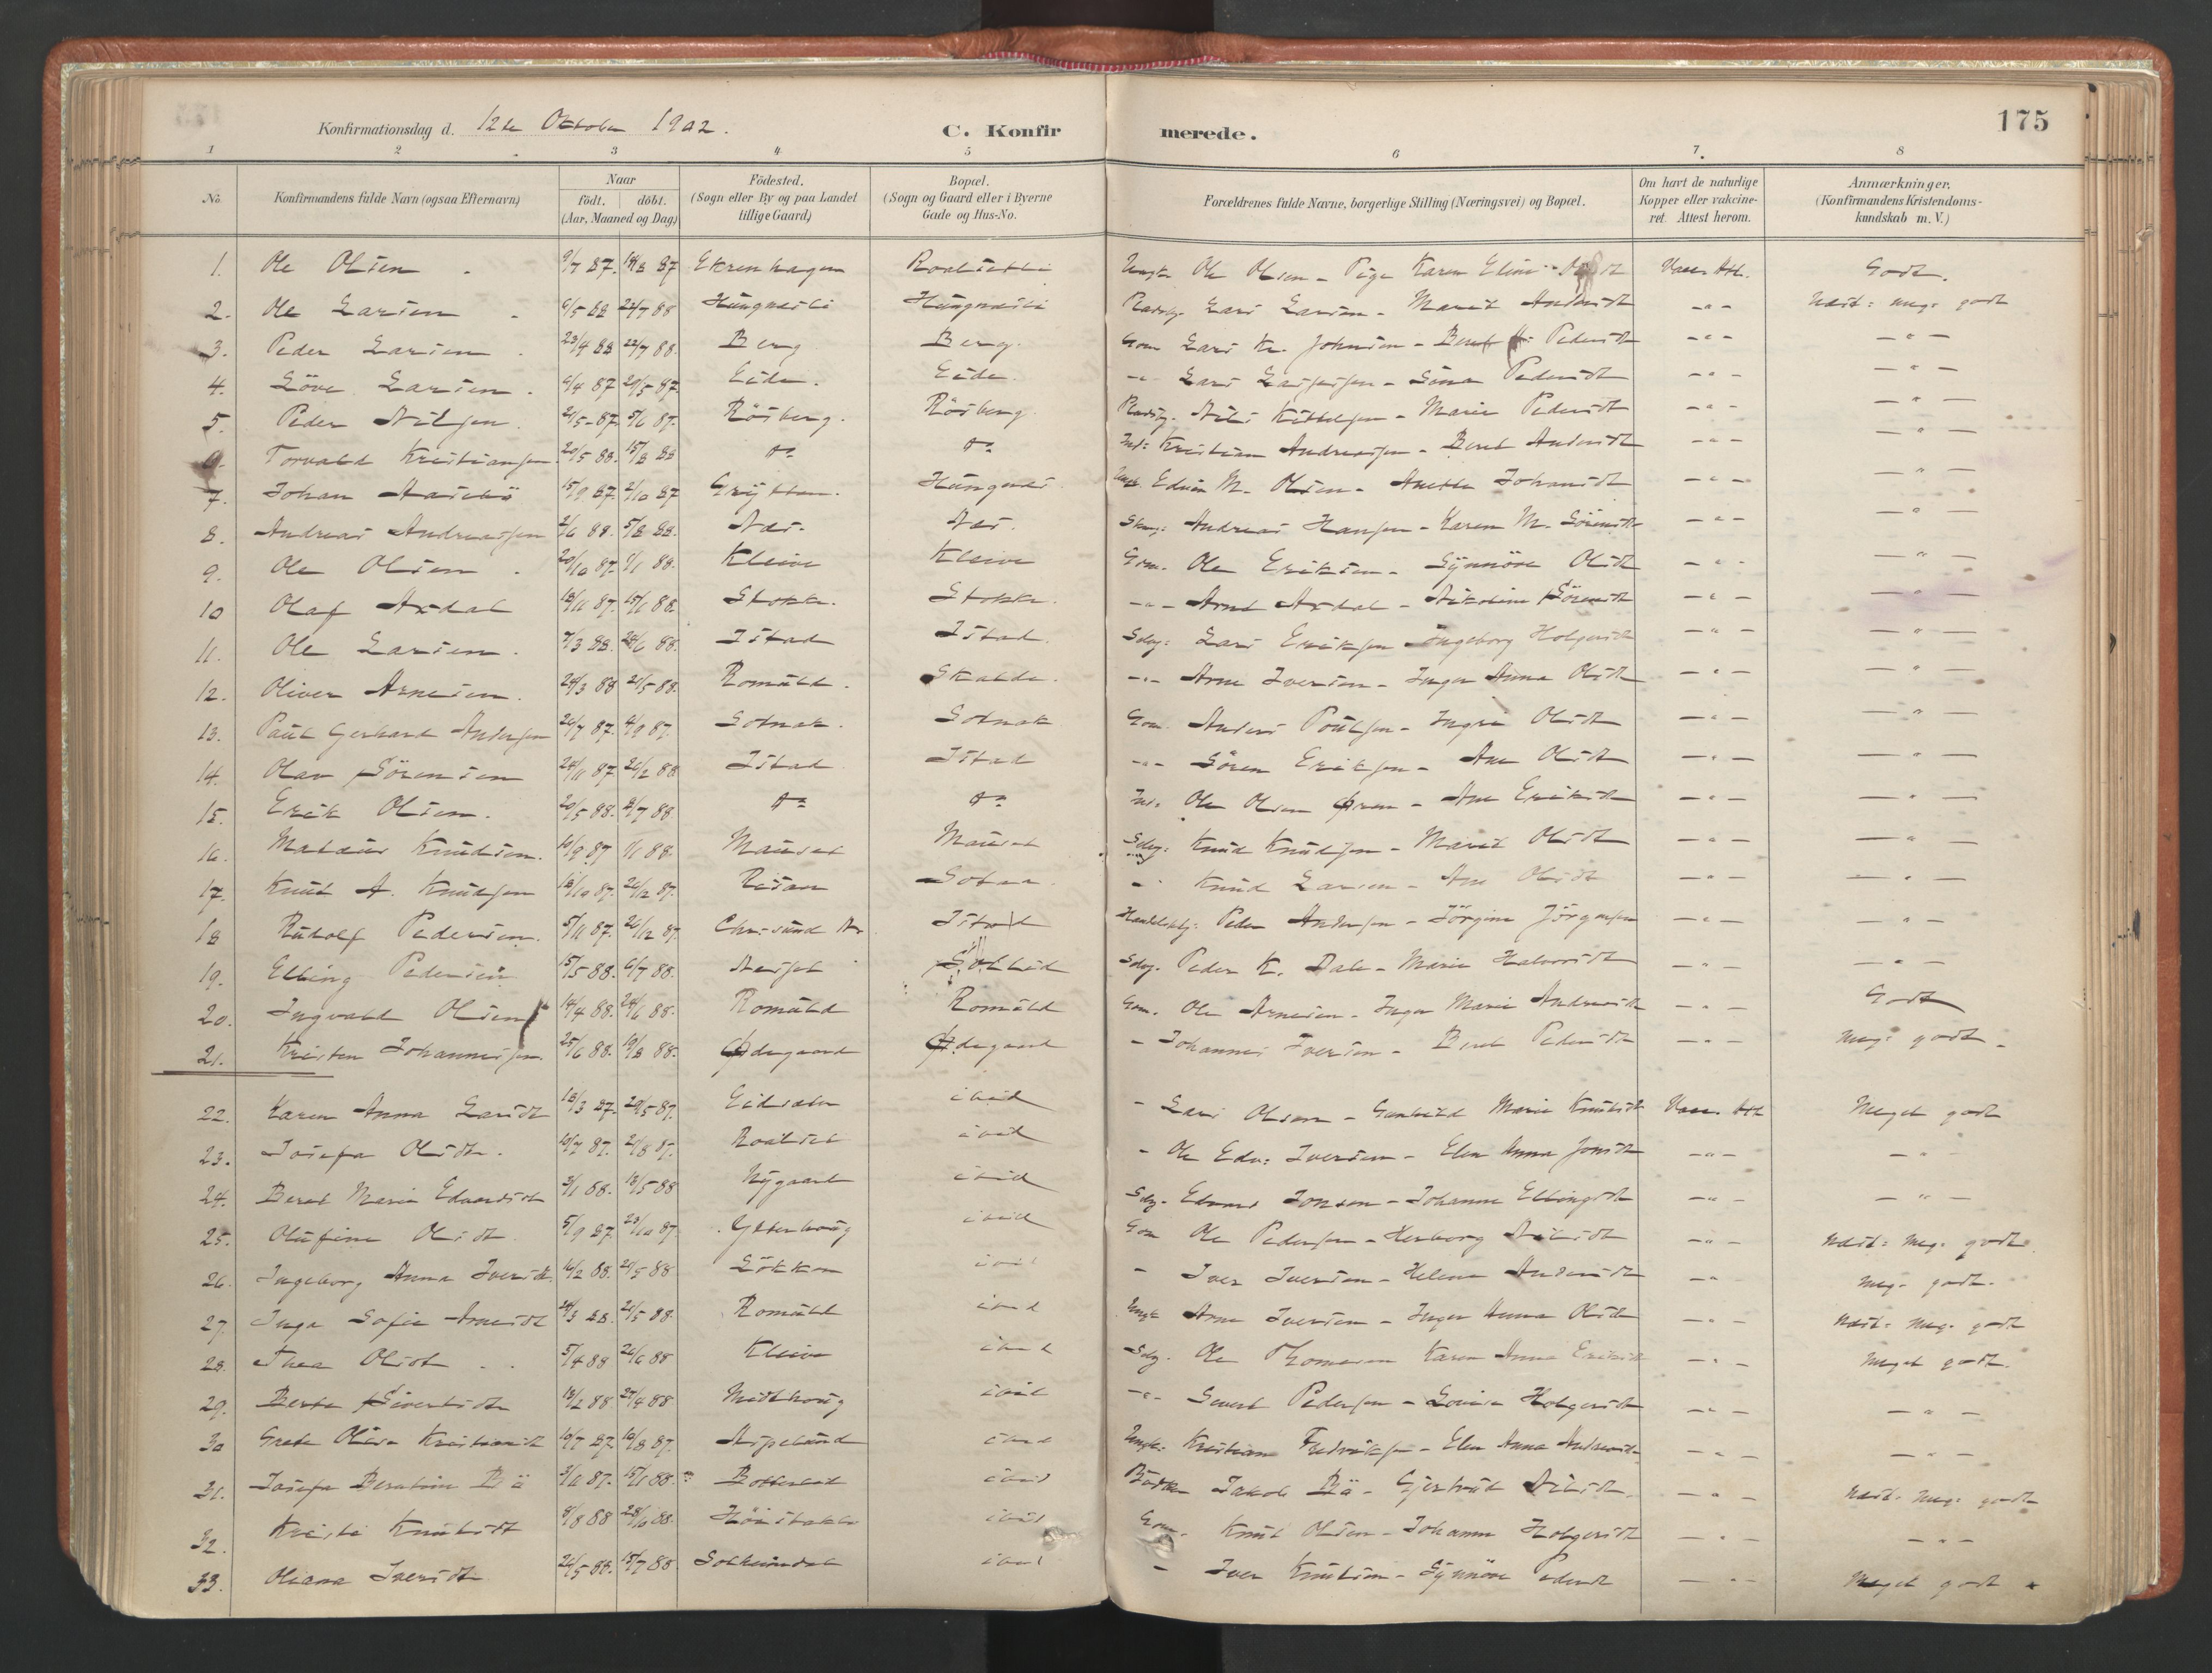 175
Konfirmationsdag d. 12te Oktober 1902. C. Konfirmerede.
1 2 3 4 5 6 7. 8
No. Konfirmandens fulde Navn (ogsaa Efternavn) Naar födt. döbt. (Aar, Maaned og Dag) Födested. (Sogn eller By og paa Landet tillige Gaard) Bopæl. (Sogn og Gaard eller i Byerne Gade og Hus-No. Forældrenes fulde Navne, borgerlige Stilling (Næringsvei) og Bopæl. Om havt de naturlige Kopper eller vakcineret Attest herom. Anmærkninger. (Konfirmandens Kristendomskundskab m. V.)
1. Ole Olsen 9/7 87. 14/8 87 Ekrenhagen Ungk. Ole Olsen - Pige Karen Eline Vacc. Att. Godt.
2. Ole Larsen 6/5 88 22/7 88 Hungnesli Hungnesli Lars Larsen - Marit Andersdt -"- Næst: meg: godt
3. Peder Larsen 23/4 88 22/7 88. Berg Berg. Gom Lars Kr. Johnsen - Beret Pedersdt -"- -"-
4. Löve Larsen 6/4 87 29/5 87. Eide. Eide. -"- Lars - Pedersdt -"- -"-
5. Peder Nilsen. 21/5 87. 5/6 87. Rösberg. Rösberg. Nils Kittelsen - Marie Pedersdt -"- -"-
6. Torvald Kristiansen 20/5 88. 15/8 88 do do Ind: Kristian Andreassen - Beret Andersdt -"- -"-
7. Johan 15/9 87 2/10 87 Grytten. Hungnes. Ungk. Edvin M. Olsen - Anetta Johansdt -"- -"-
8. Andreas Andreassen 2/6 88. 5/8 88. Næs. Næs. Andreas Hansen - Karen M. Sörensdt -"- -"-
9. Ole Olsen 20/10 87. 1/1 88. Kleive Kleive Gom. Ole Eriksen - Synnöve Olsdt -"- -"-
10 Olaf Axdal 18/11 87. 15/1 88. Stokke. Stokke. -"- Arnt Axdal - Nikoline Sörensdt -"- -"-
11. Ole Larsen. 7/3 88. 24/6 88. Istad Istad. Sdbg: Lars Eriksen Ingeborg Holgersdt -"- -"-
12. Oliver Arnesen. 24/3 88 21/5 88. Romuld. Skalde. -"- Arne Iversen - Inger Anna Olsdt -"- -"-
13. Paul Gerhard Andersen 26/7 87. 4/9 87. Solnæs. Solnæs Gom. Anders Poulsen - Ingri Olsdt -"- -"-
14. Olav Sörensen 24/11 87 26/2 88 Istad Istad -"- Sören Eriksen - Ane Olsdt -"- -"-
15. Erik Olsen. 20/5 88. 8/7 88. do do Ind: Ole Olsen - Ane Eriksdt -"- -"-
16. Knudsen. 10/9 87 1/1 88. Mauset Mauset Sdbg: Knud Knudsen - Marit Olsdt -"- -"-
17. Knut A. Knudsen 18/10 87. 26/12 87. - Knud Larsen - Ane Olsdt -"- -"-
18 Rudolf Pedersen. 5/11 87. 26/12 87. Chr:sund N. Istad Peder Andersen - Jörgine Jörgensen -"- -"-
19. Elling Pedersen 15/5 88. 6/7 88. Solli Sdbg. Peder K. Dale - Marie Halvorsdt -"- -"-
20. Ingvald Olsen 14/4 88. 24/6 88. Romuld Romuld Gom. Ole Arnesen - Inger Marie Andersdt -"- Godt
21. Kristen Johannesen 25/6 88. 19/8 88. Ødegaard Ødegaard - Johannes Iversen - Beret Pedersdt -"- Meg: godt.
22. Karen Anna Larsdt 18/3 87. 29/5 87. Eidsæter ibid - Lars Olsen - Gunhild Marie Knutsdt Vacc. Att Meget godt
23. Josefa Olsdt. 10/7 87. 21/8 87. ibid - Ole Edv: Iversen - Elen Anna Jonsdt -"- -"-
24. Beret Marie Edvardsdt 3/1 88. 13/5 88 Nygaard ibid Sdbg. Edvard Jonsen - Johanne Ellingsdt -"- -"-
25. Olufine Olsdt. 5/9 87. 23/10 87. Ytterhaug ibid Gom Ole Pedersen - Herborg Nilsdt -"- Næst: Meg: godt.
26. Ingeborg Anna Iversdt. 16/2 88. 21/5 88 Lökken ibid - Iver Iversen - Helene Andersdt -"- Meg. godt.
27. Inga Sofie Arnesdt 24/3 88. 21/5 88. Romuld ibid Ungk Arne Iversen - Inger Anna Olsdt -"- Næst: Meg. godt
28. Thea Olsdt 5/4 88 26/6 88 Kleive ibid Sdbg. Ole Thomesen Karen Anna Eriksdt -"- Meget godt.
29. Berte Sivertsdt 13/2 88 27/4 88 Midthaug ibid -"- Sivert Pedersen - Lovise Holgersdt -"- -"-
30 Grete Olise Kristiansdt 10/7 87. 10/8 87. Aspelund ibid Ungk: Kristian Fredriksen - Elen Anna Andersdt -"- -"-
31. Josefa Berntine Bö 3/11 87. 15/1 88. ibid Jakob Bö - Gjertrud Nilsdt. -"- Næst. Meg: godt
32. Kristi Knutsdt 8/8 88 ibid Gom. Knut Olsen - Johanna Holgersdt -"- -"-
33. Oliana Iversdt 26/5 88. 15/7 88 ibid - Iver Knutsen - Synnöve Pedersdt -"- Meget godt